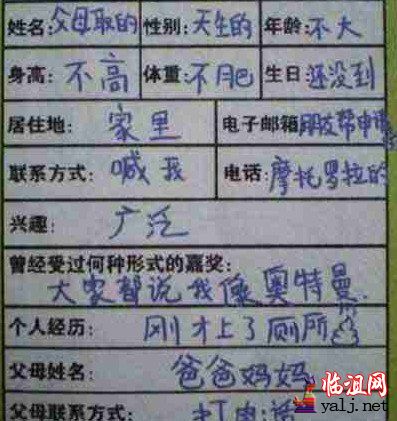 姓名:父母取的 性别:天生的 年龄:不大
身高:不高 体重:不肥 生日:还没到
居住地:家里 电子邮箱:朋友帮申请的
联系方式:喊我 电话:摩托罗拉的
兴趣:广泛
曾经受过何种形式的嘉奖:
大家都说我像奥特曼.
个人经历:刚才上了厕所
父母姓名:爸爸妈妈
父母联系方式:打电话
临沮网
yalj.net